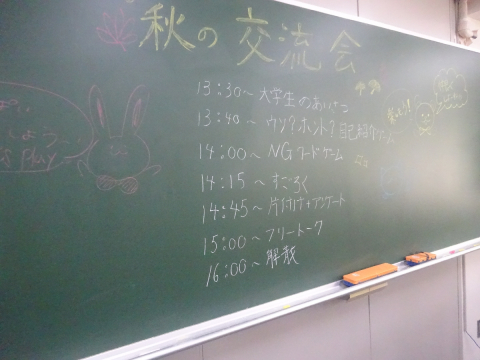 秋の交流会
13:30~ 大学生のあいさつ
13:40~ ウソ?ホント?自己紹介ゲーム
14:00~ NGワードゲーム
14:15~ すごろく
14:45~ 片付け+アンケート
15:00~ フリートーク
16:00~ 解散
しよう~
Play